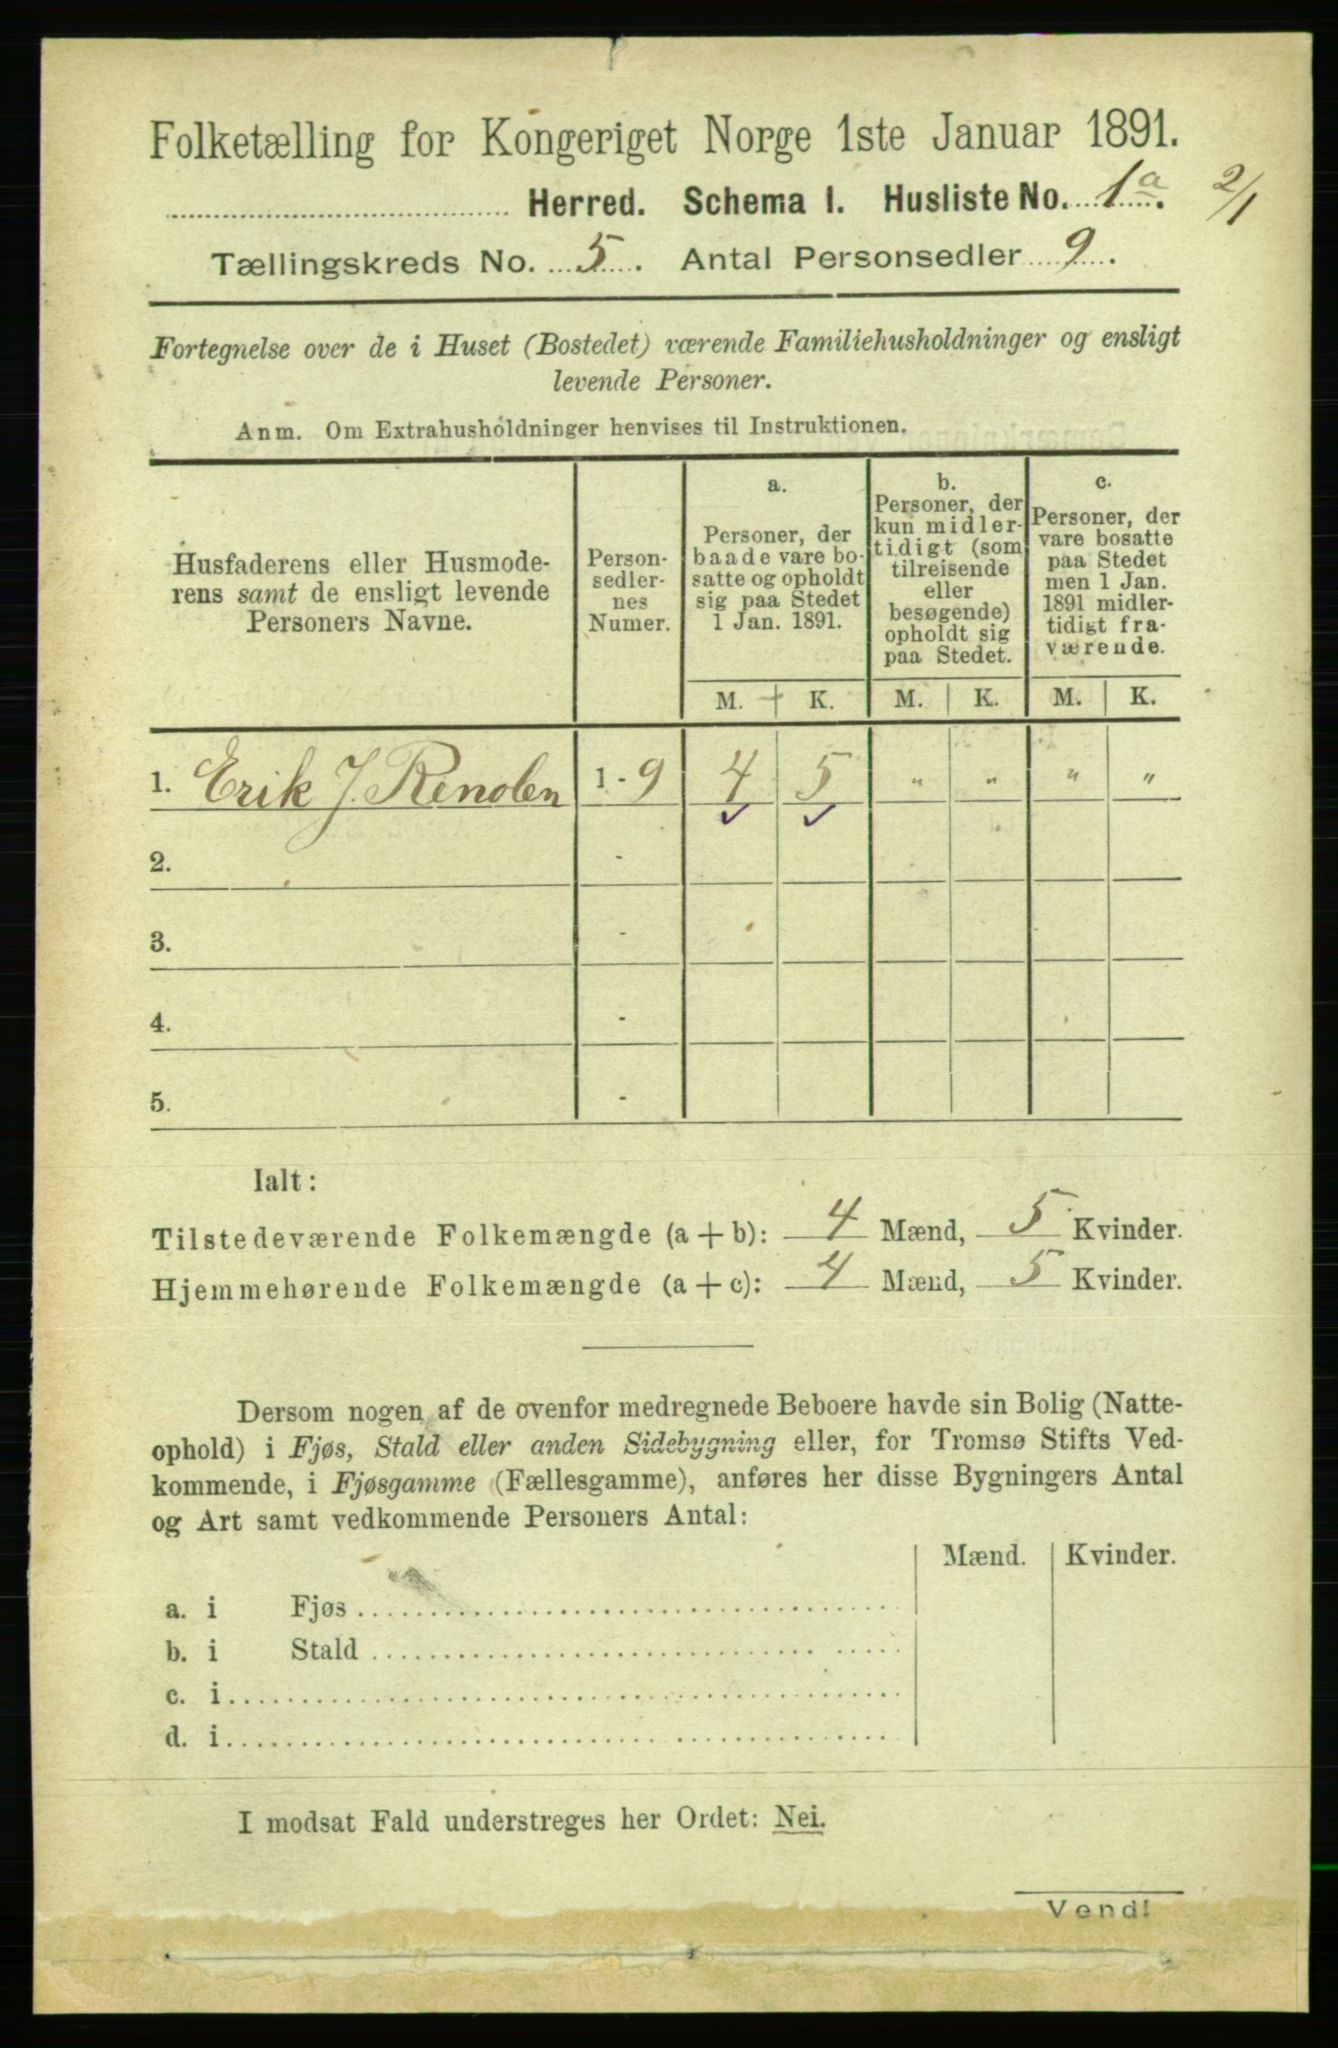 Folketælling for Kongeriget Norge 1ste Januar 1891.
Herred. Schema I. Husliste No. 1a. 2/1
Tællingskreds No. 5. Antal Personsedler 9.
Fortegnelse over de i Huset (Bostedet) værende Familiehusholdninger og ensligt
levende Personer.
Anm. Om Extrahusholdninger henvises til Instruktionen.
Husfaderens eller Husmode-
rens samt de ensligt levende
Personers Navne.
Person-
sedler-
nes
Numer.
a.
Personer, der
baade vare bo-
satte og opholdt
sig paa Stedet
1 Jan. 1891.
b.
Personer, der
kun midler-
tidigt (som
tilreisende
eller
besøgende)
opholdt sig
paa Stedet.
c.
Personer, der
vare bosatte
paa Stedet
men 1 Jan.
1891 midler-
tidigt fra-
værende.
M. K. M. K. M. K.
1. Erik J. Renolen 1 - 9 4 5 " " " "
2. -
3. -
4. -
5. -
Ialt:
Tilstedeværende Folkemængde (a + b): 4 Mænd, 5 Kvinder.
Hjemmehørende Folkemængde (a + c): 4 Mænd, 5 Kvinder.
Dersom nogen af de ovenfor medregnede Beboere havde sin Bolig (Natte-
ophold) i Fjøs, Stald eller anden Sidebygning eller, for Tromsø Stifts Ved-
kommende, i Fjøsgamme (Fællesgamme), anføres her disse Bygningers Antal
og Art samt vedkommende Personers Antal:
Mænd. Kvinder.
a. i Fjøs
b. i Stald
c. i
d. i
I modsat Fald understreges her Ordet: Nei.
Vend!